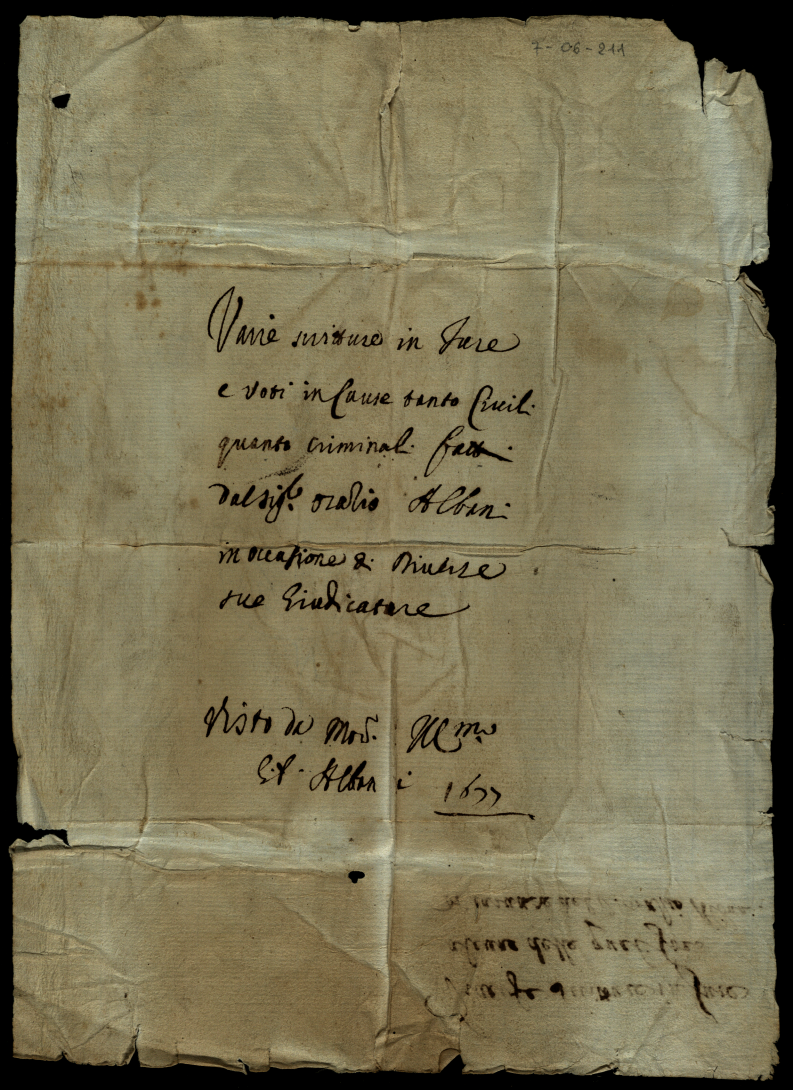 7-06-211
Varie scritture in Jure
e Voti in Cause tanto Civili
quanto criminali fatti
dal Sig.r Oratio Albani
in occasione di diverse
sue Giudicature
Visto da Mons.r Ill.mo
Albani 1677